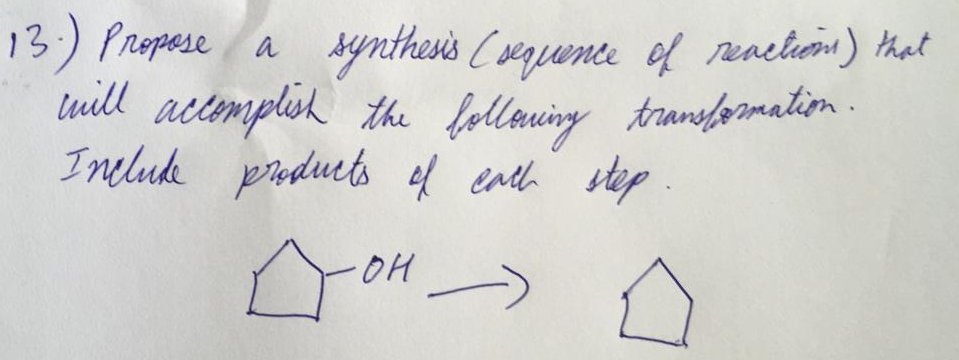 13.) Propose a synthesis (sequence of reactions) that
will accomplish the following transformation.
Include products of each step.
OH